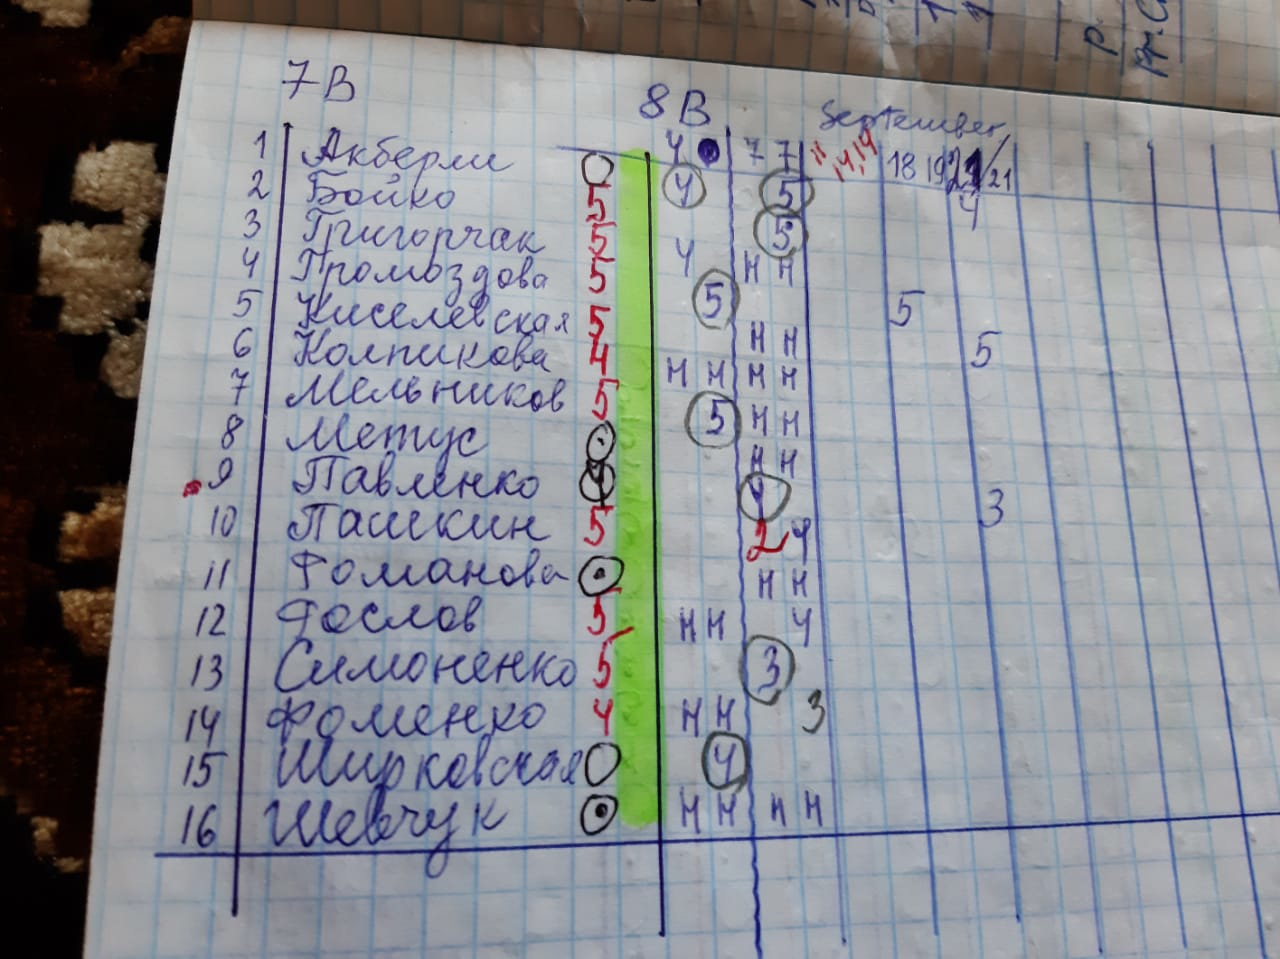 7В
8В
September
4 7 7 11 14, 14 18 19 21 21
1 Акберли
2 Бойко 5 4 5 4
3 Григорчак 5 5
4 Громоздова 5 4 н н
5 Киселевская 5 5 5
6 Колпикова 4 н н 5
7 Мельников 5 н н н н
8 Метус 5 н н
9 Павленко н н
10 Пашкин 5 4 3
11 Романова 2 4
12 Рослов 5 н н
13 Симоненко 5 н н 4
14 Фоменко 4 3
15 Ширковская н н 3
16 Шевчук 4
н н н н